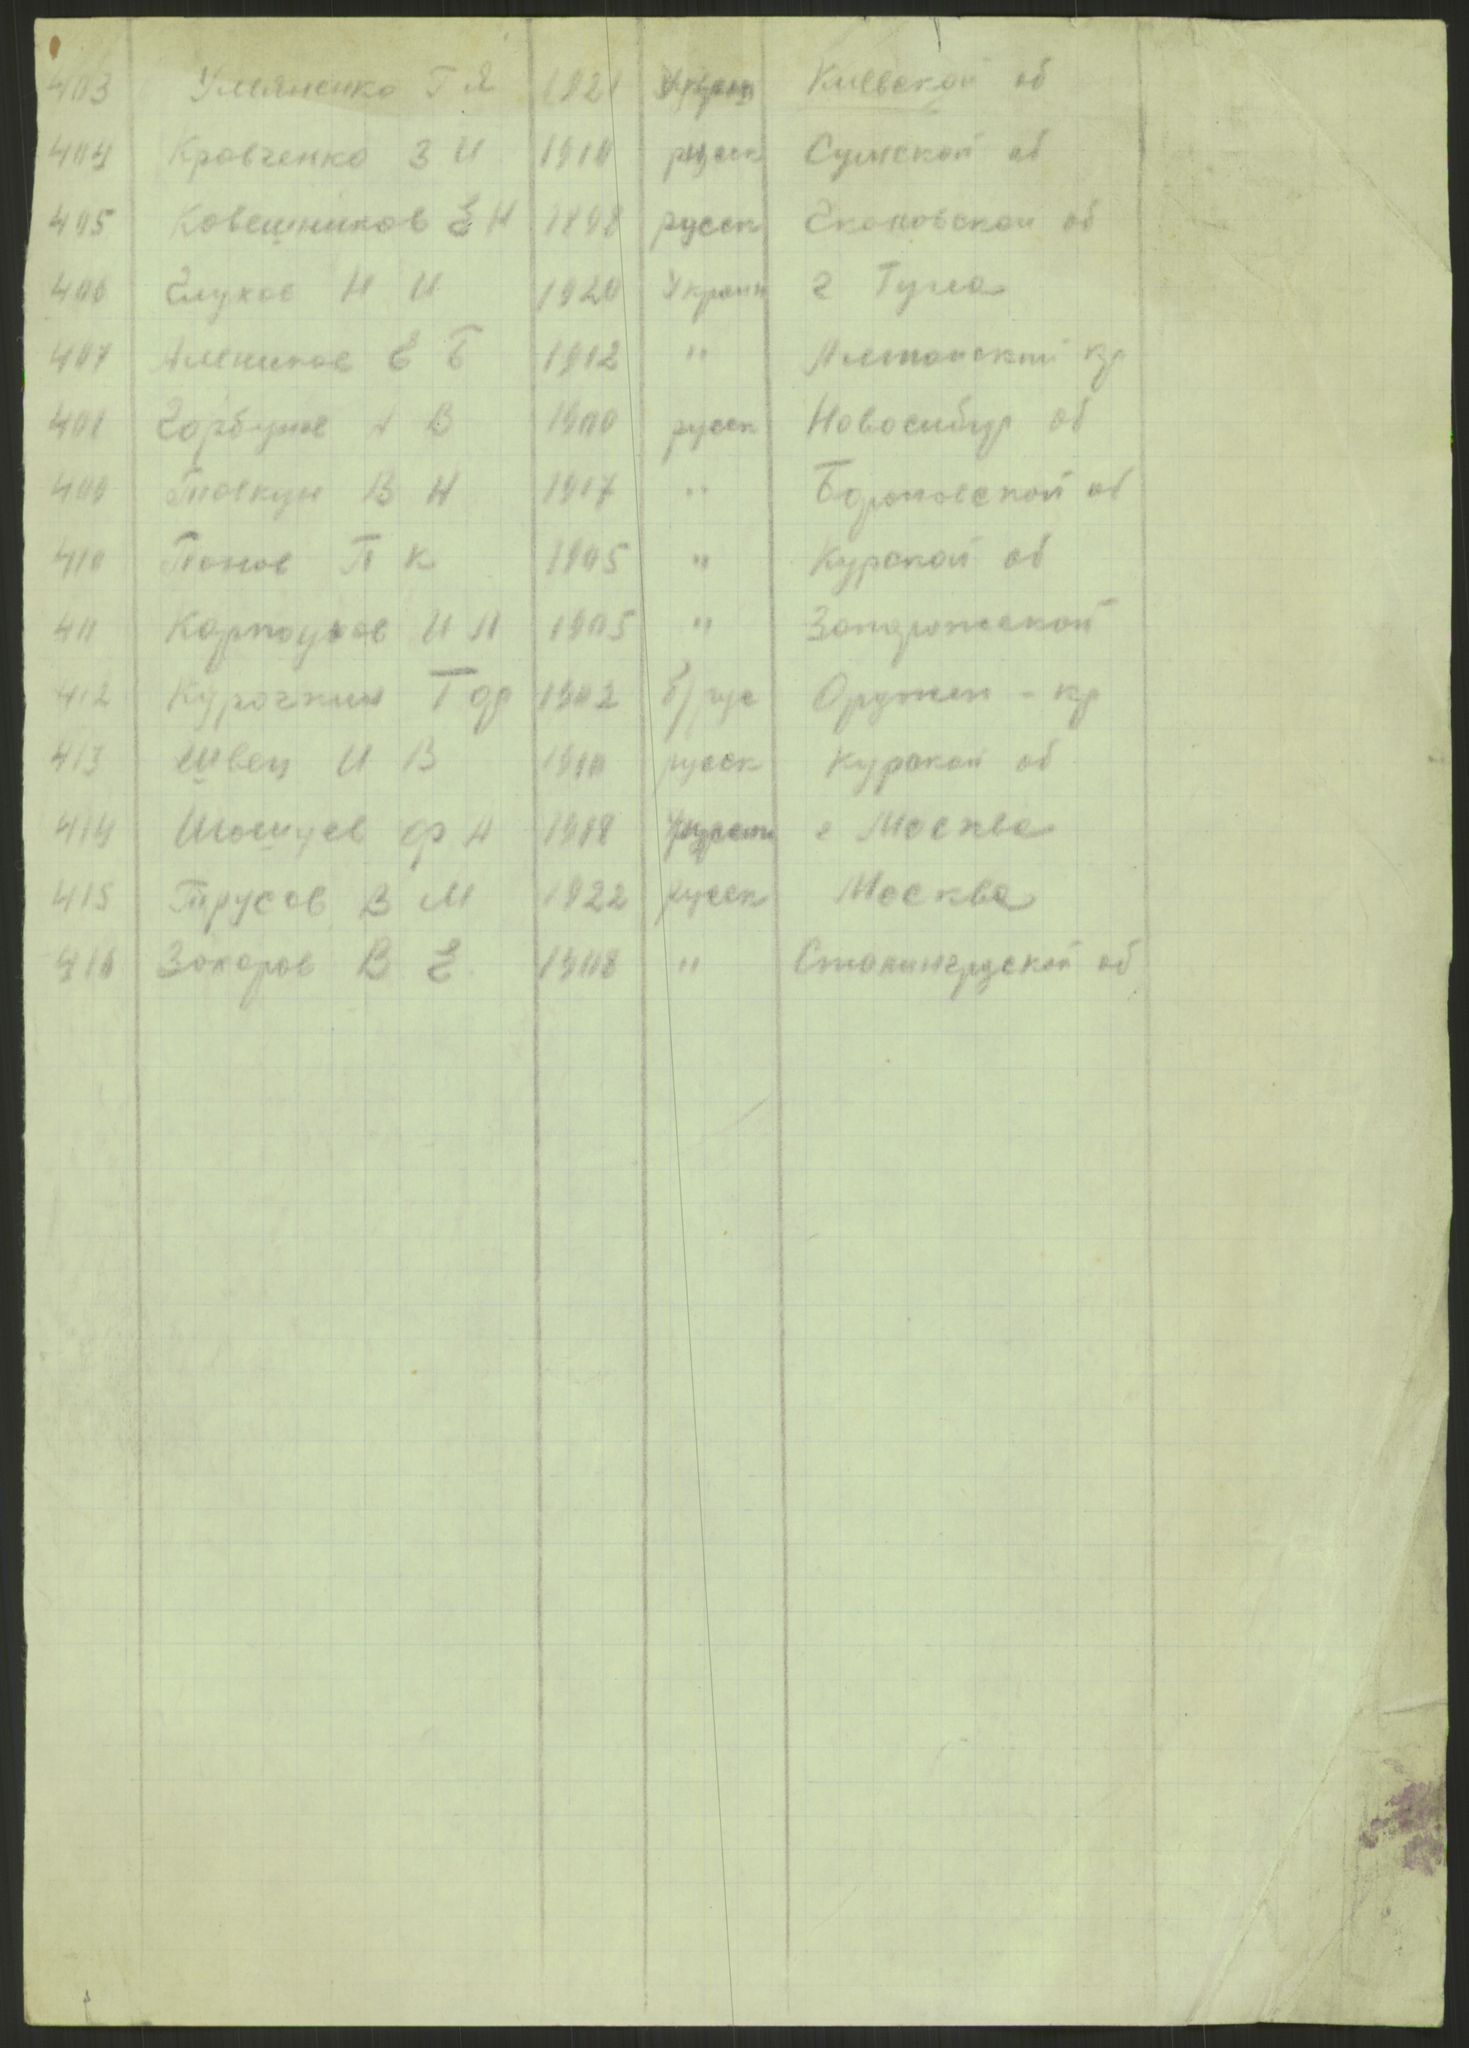 403 Ульяненко Г Я 1921 Украин Киевской об
404 Кравченко З И 1910 русск Сумской об
405 Ковешников Е Н 1898 русск об
406 Глухов Н И 1920 Украин г Тула
407 Е Б 1912 " Алтайский кр
408 Горбунов А В 1900 русск Новосибир об
409 В Н 1917 " об
410 Попов П К 1905 " Курской об
411 Карпоухов И П 1905 " Запорожской
412 Курочкин Т Ф 1902 б/рус кр
413 Швец И В 1910 русск Курской об
414 Ф А 1918 Украин г Москва
415 Трусов В М 1922 русск Москва
416 Захаров В Е 1908 " Сталинградской об